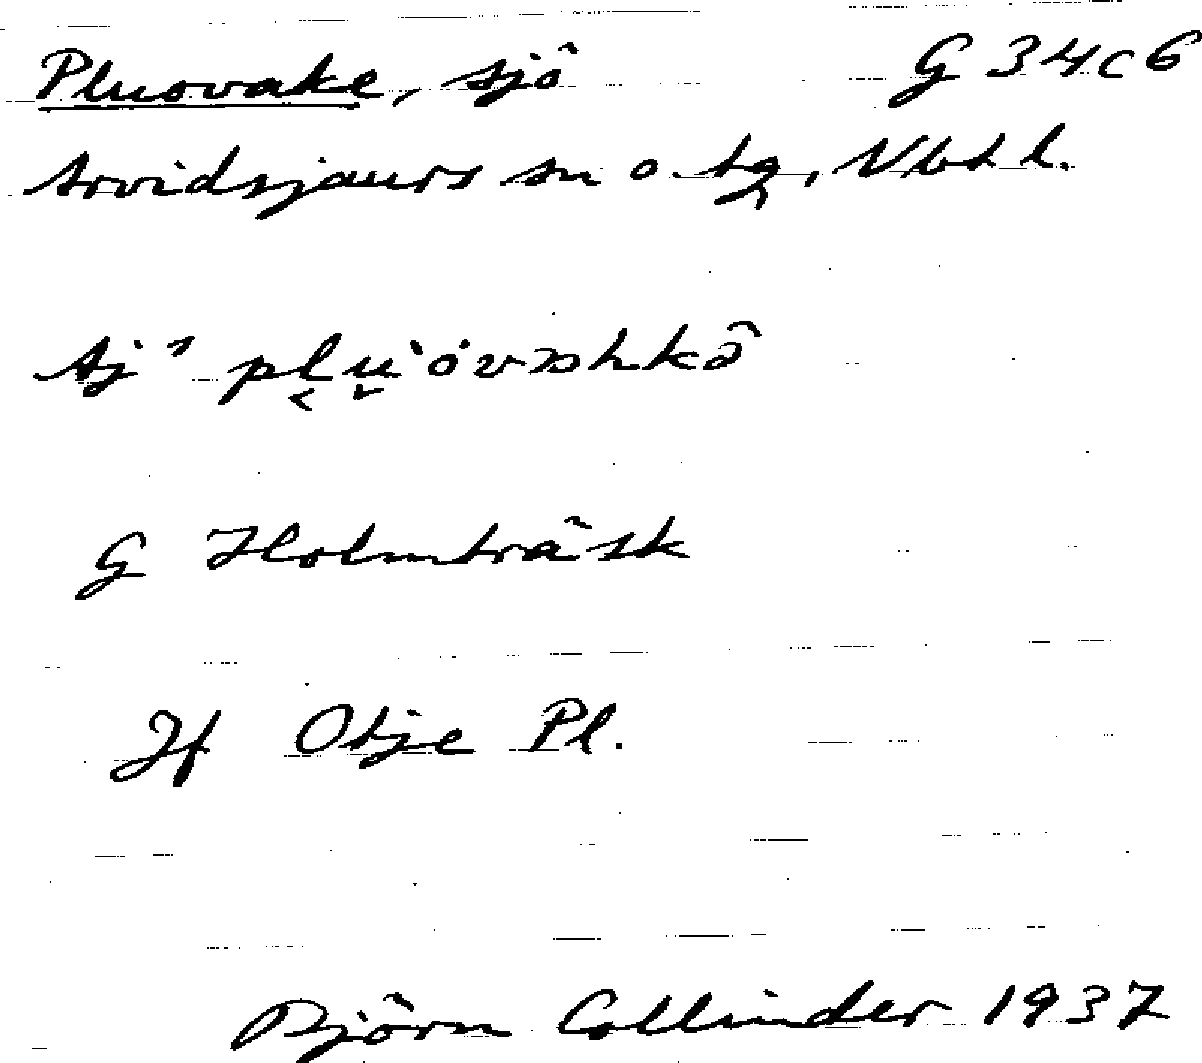 Pluovake, sjö G 34c6
Arvidsjaurs sn o. tg, Vbtl.
Aj
G Holmträsk
Jf Otje Pl.
Björn Collinder 1937